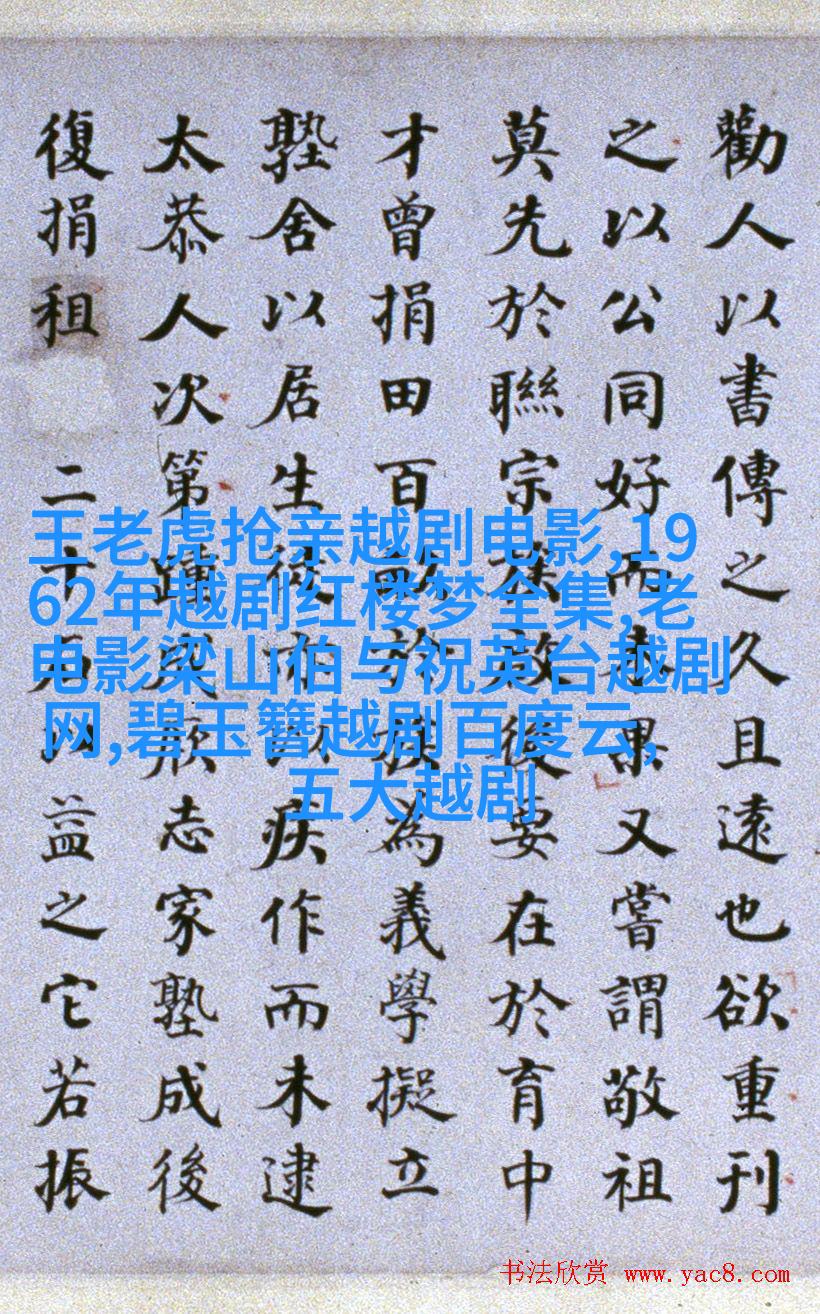 勸人以書傳之久且遠也欲重刊
之以公同好而未果又嘗謂敬祖
莫先於聯宗族後要在於育中
才曾捐田百畝於族為義學擬立
塾舍以居生徒以疾作而未逮
太恭人次第成厥志家塾成後
復捐租二十石以益之它若振
王老虎抢亲越剧电影,19
62年越剧红楼梦全集,老
电影梁山伯与祝英台越剧
网,碧玉簪越剧百度云,
五大越剧
书法欣赏 www.yac8.com